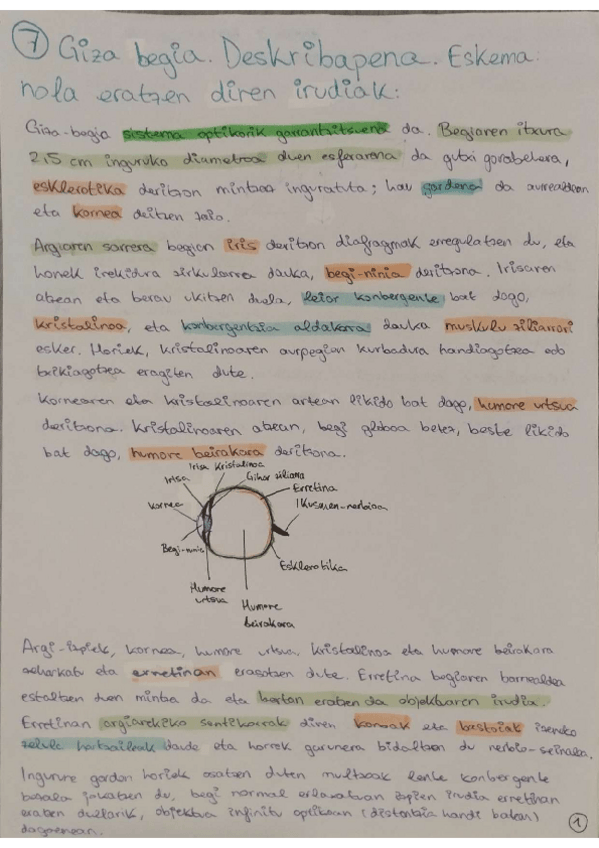 7 Giza begia. Deskribapena. Eskema:
nola eratzen diren irudiak:
Giza-begia sistema optikorik garrantzitsuena da. Begiaren itxura
2,5 cm inguruko diametroa duen esferarena da gutxi gorabehera,
esklerotika deritzon mintzaz inguratuta; hau gardena da aurrealdean
eta kornea deitzen zaio.
Argiaren sarrera begian iris deritzon diafragmak erregulatzen du, eta
honek irekidura zirkularra dauka, begi-ninia deritzona. Irisaren
atzean eta berau ukitzen duela, leiar konbergente bat dago,
kristalinoa, eta konbergentzia aldakorra dauka muskulu ziliarrari
esker. Horiek, kristalinoaren aurpegian kurbadura handiagotzea edo
txikiagotzea eragiten dute.
Kornearen eta kristalinoaren artean likido bat dago, humore urtsua
deritzona. Kristalinoaren atzean, begi globoa betez, beste likido
bat dago, humore beirakara deritzona.
Irisa Kristalinoa
Irisa
Gihar ziliarra
Erretina
Kornea
Ikusmen-nerbioa
Begi-ninia
Esklerotika
Humore
urtsua
Humore
beirakara
Argi-izpiek, kornea, humore urtsua, kristalinoa eta humore beirakara
zeharkatu eta erretinan erasotzen dute. Erretina begiaren barnealdea
estaltzen duen mintza da eta bertan eratzen da objektuaren irudia.
Erretinan argiarekiko sentikorrak diren konoak eta bastoiak izeneko
zelula hartzaileak daude eta horrek garunera bidaltzen du nerbio-seinalea.
Ingurune garden horiek osatzen duten multzoak lente konbergente
bezala jokatzen du, begi normal erlaxatuan izpien irudia erretinan
eratzen duelarik, objektua infinitu optikoan (distantzia handi batean)
dagoenean.
1